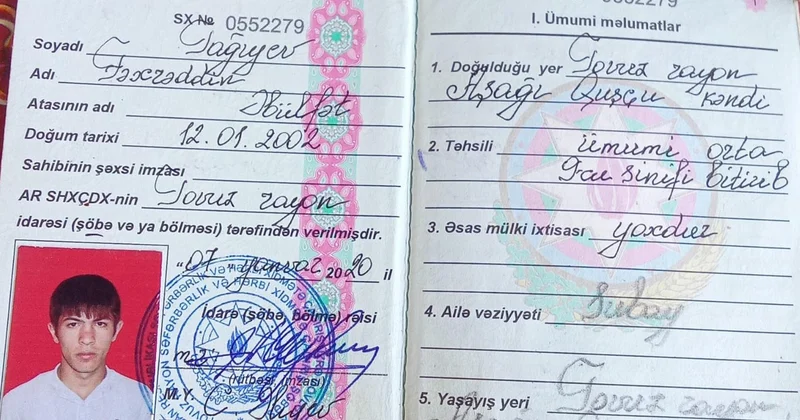 SX № 0552279
Soyadı Tağıyev
Adı Fəxrəddin
Atasının adı Əbülfət
Doğum tarixi 12.01.2002
Sahibinin şəxsi imzası
AR SHXÇDX-nin Tovuz rayon
idarəsi (şöbə və ya bölməsi) tərəfindən verilmişdir.
"07" yanvar 2020 il
İdarə (şöbə, bölmə) rəisi
(rütbəsi, imzası)
M.Y.
0552279
I. Ümumi məlumatlar
1. Doğulduğu yer Tovuz rayon
Aşağı Quşçu kəndi
2. Təhsili ümumi orta
9-cu sinifi bitirib
3. Əsas mülki ixtisası yoxdur
4. Ailə vəziyyəti Subay
5. Yaşayış yeri Tovuz rayon